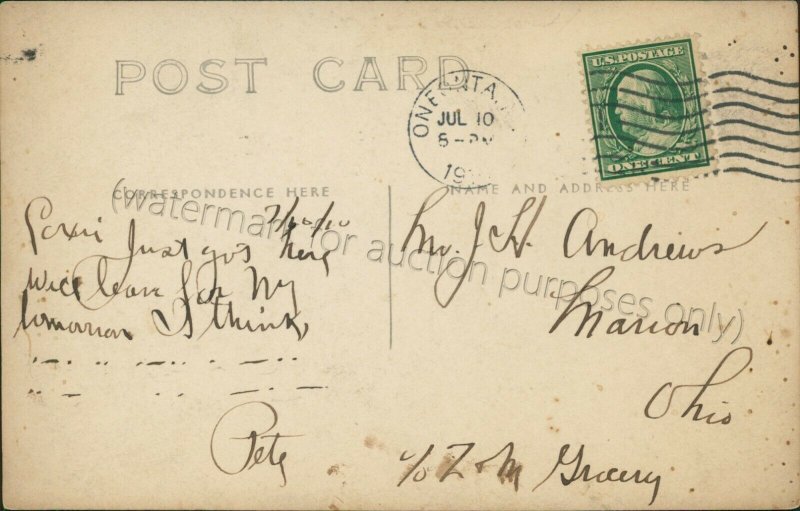 POST CARD
ONEONTA, N
JUL 10
8-PM
19
U.S. POSTAGE
ONE CENT
CORRESPONDENCE HERE
NAME AND ADDRESS HERE
(watermark for auction purposes only)
7/10/10
Just got here
will leave for NY
tomorrow I think,
Pete
Mr. J. H. Andrews
Marion
Ohio
c/o Z & M Grocery